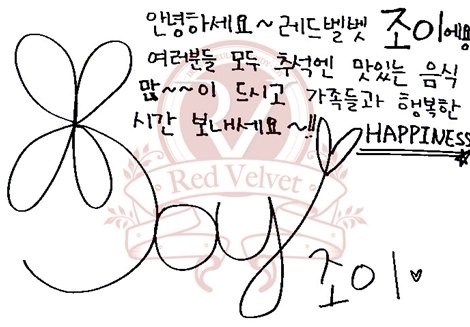 안녕하세요~ 레드벨벳 조이에요
여러분들 모두 추석엔 맛있는 음식
많~~이 드시고 가족들과 행복한
시간 보내세요~!!
HAPPINESS
Red Velvet
Joy
조이♥